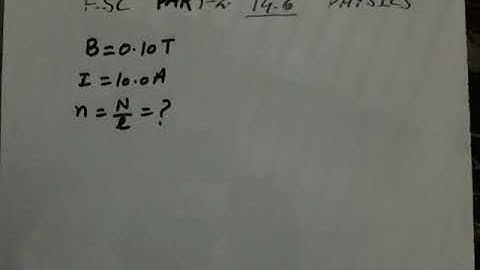 F.SC PART-2 14.6 PHYSICS
B = 0.10T
I = 10.0A
n = N/l = ?